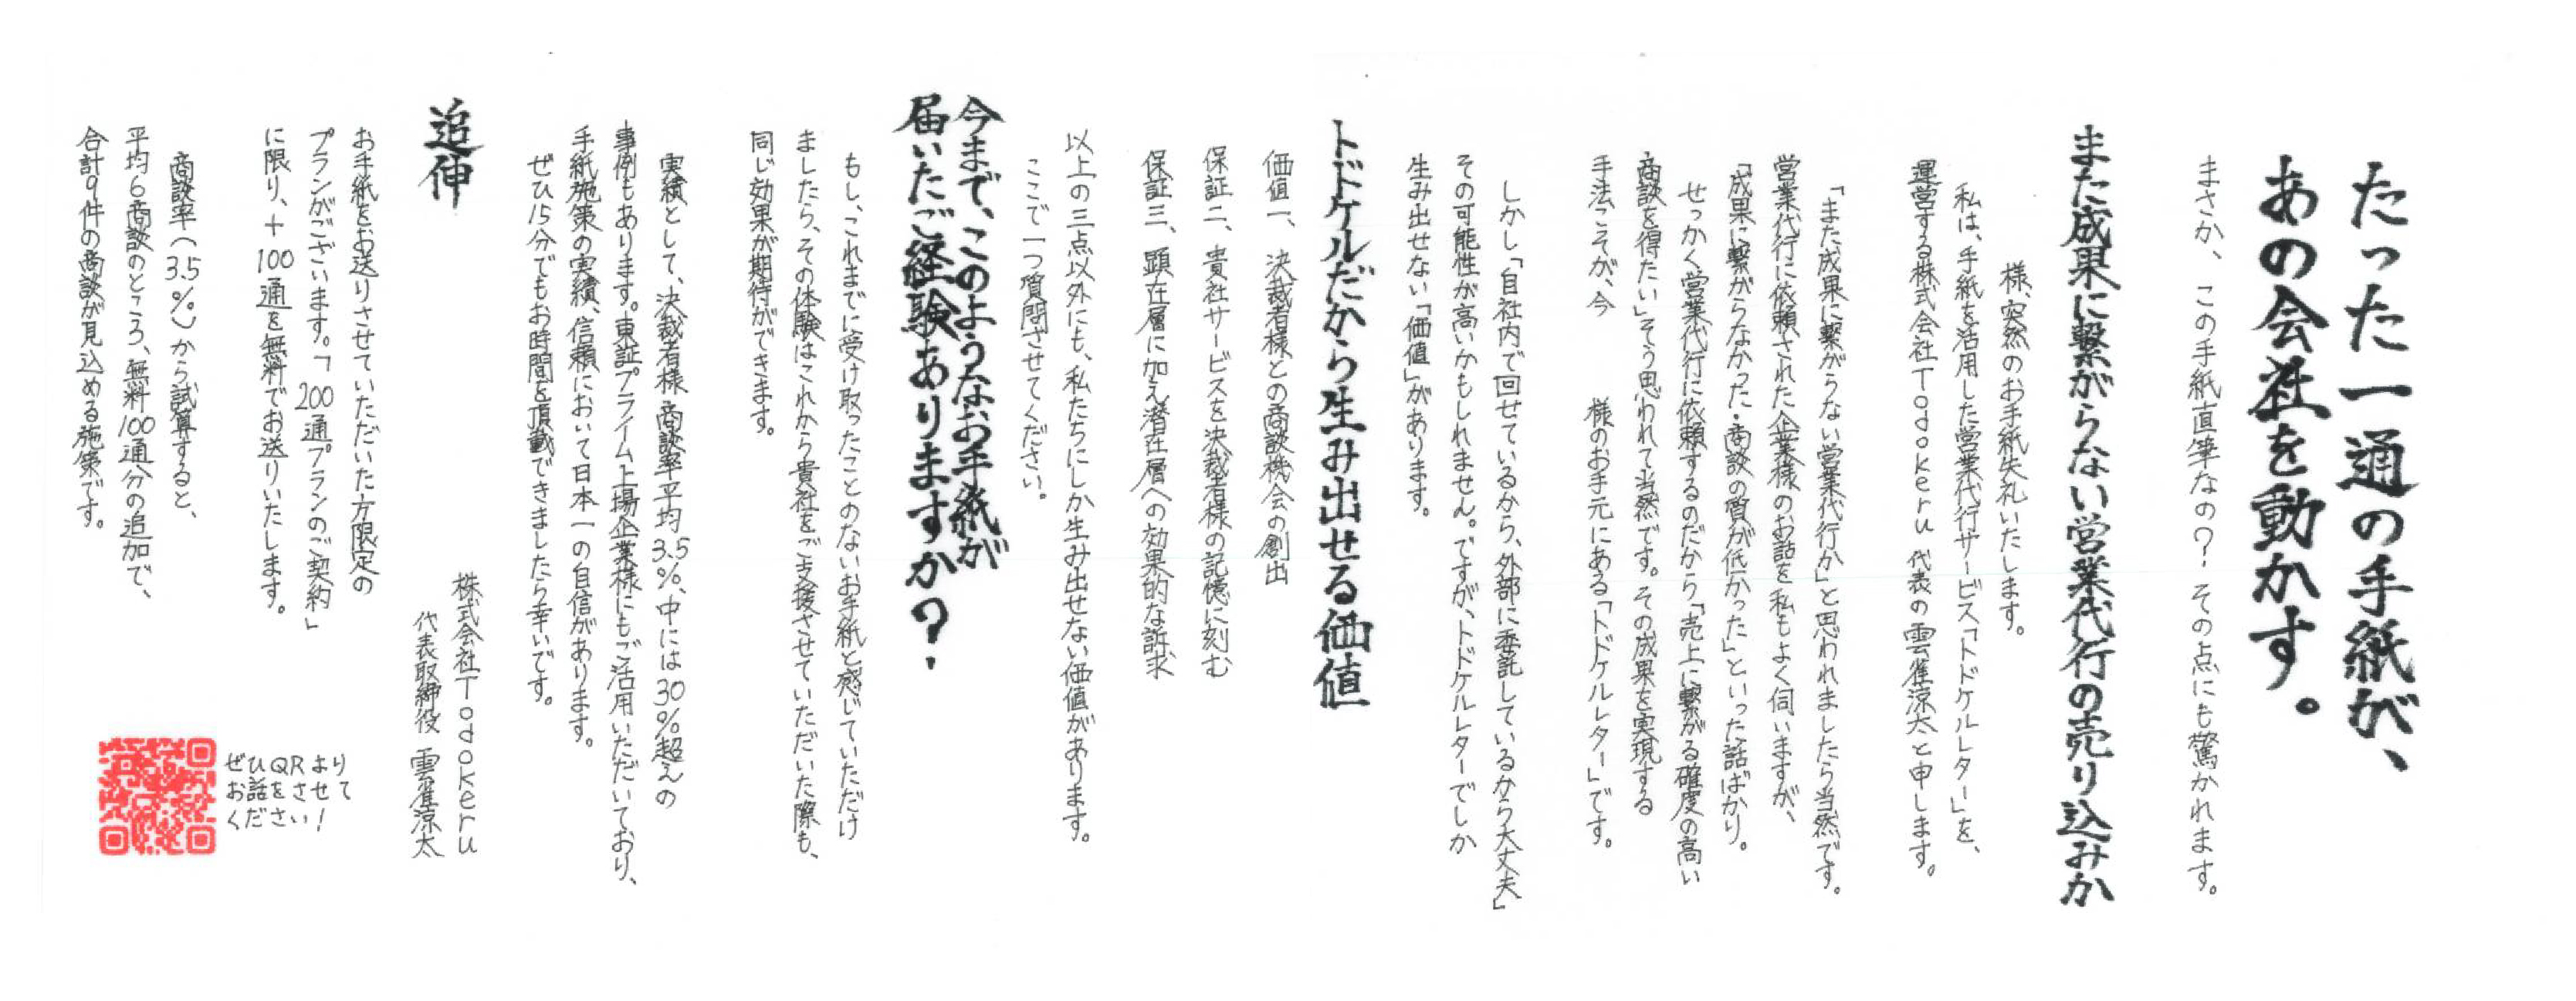 たった一通の手紙が、
あの会社を動かす。
まさか、この手紙直筆なの？その点にも驚かれます。
また成果に繋がらない営業代行の売り込みか
様、突然のお手紙失礼いたします。
私は、手紙を活用した営業代行サービス「トドケルレター」を、
運営する株式会社Todokeru 代表の雲雀涼太と申します。
「また成果に繋がらない営業代行か」と思われましたら当然です。
営業代行に依頼された企業様のお話を私もよく伺いますが、
「成果に繋がらなかった・商談の質が低かった」といった話ばかり。
せっかく営業代行に依頼するのだから「売上に繋がる確度の高い
商談を得たい」そう思われて当然です。その成果を実現する
手法こそが、今 様のお手元にある「トドケルレター」です。
しかし「自社内で回せているから、外部に委託しているから大丈夫」
その可能性が高いかもしれません。ですが、トドケルレターでしか
生み出せない「価値」があります。
トドケルだから生み出せる価値
価値一、決裁者様との商談機会の創出
保証二、貴社サービスを決裁者様の記憶に刻む
保証三、顕在層に加え潜在層への効果的な訴求
以上の三点以外にも、私たちにしか生み出せない価値があります。
ここで一つ質問させてください。
今まで、このようなお手紙が
届いたご経験ありますか？
もし、これまでに受け取ったことのないお手紙と感じていただけ
ましたら、その体験はこれから貴社をご支援させていただいた際も、
同じ効果が期待ができます。
実績として、決裁者様商談率平均3.5%、中には30%超えの
事例もあります。東証プライム上場企業様にもご活用いただいており、
手紙施策の実績、信頼において日本一の自信があります。
ぜひ15分でもお時間を頂戴できましたら幸いです。
株式会社Todokeru
代表取締役 雲雀涼太
追伸
お手紙をお送りさせていただいた方限定の
プランがございます。「200通プランのご契約」
に限り、+100通を無料でお送りいたします。
商談率(3.5%)から試算すると、
平均6商談のところ、無料100通分の追加で、
合計9件の商談が見込める施策です。
ぜひQRより
お話をさせて
ください！